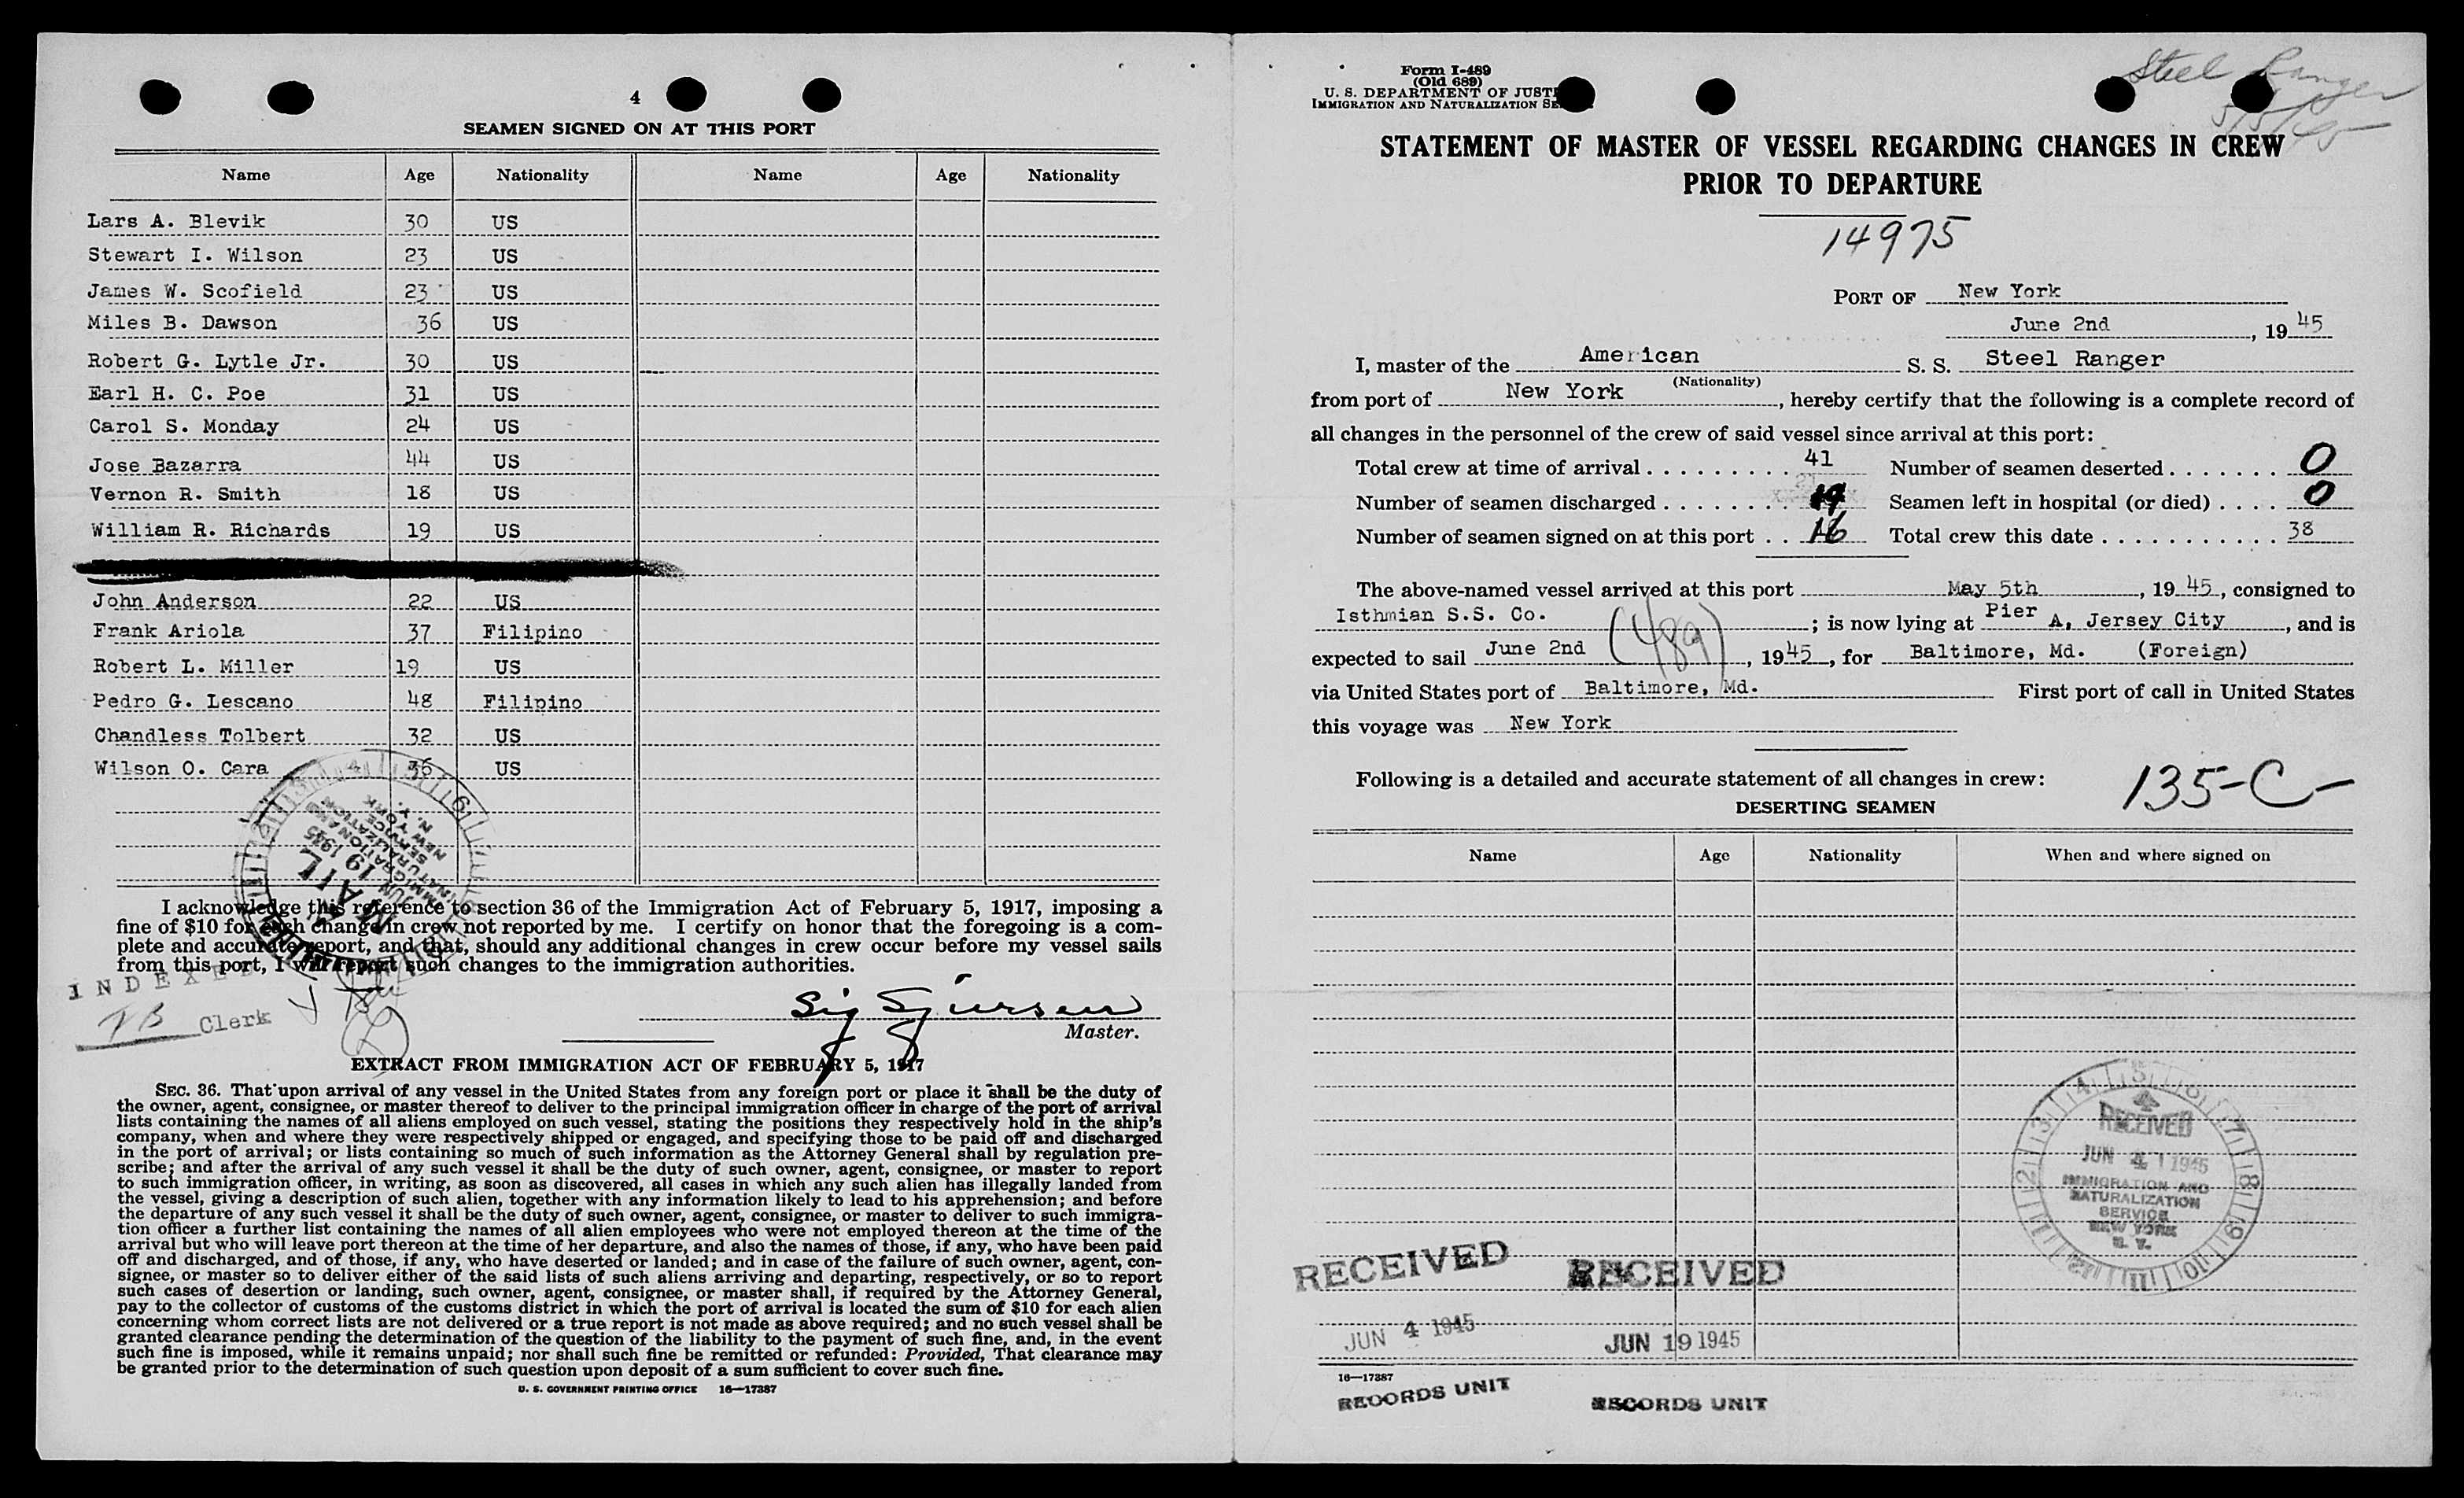 4
SEAMEN SIGNED ON AT THIS PORT
Name Age Nationality Name Age Nationality
Lars A. Blevik 30 US
Stewart I. Wilson 23 US
James W. Scofield 23 US
Miles B. Dawson 36 US
Robert G. Lytle Jr. 30 US
Earl H. C. Poe 31 US
Carol S. Monday 24 US
Jose Bazarra 44 US
Vernon R. Smith 18 US
William R. Richards 19 US
John Anderson 22 US
Frank Ariola 37 Filipino
Robert L. Miller 19 US
Pedro G. Lescano 48 Filipino
Chandless Tolbert 32 US
Wilson O. Cara 36 US
MAIL
JUN 19 1945
IMMIGRATION AND
NATURALIZATION
SERVICE
NEW YORK
N. Y.
I acknowledge this reference to section 36 of the Immigration Act of February 5, 1917, imposing a
fine of $10 for each change in crew not reported by me. I certify on honor that the foregoing is a com-
plete and accurate report, and that, should any additional changes in crew occur before my vessel sails
from this port, I will report such changes to the immigration authorities.
INDEXED
Clerk
Sig Sjursen
Master.
EXTRACT FROM IMMIGRATION ACT OF FEBRUARY 5, 1917
SEC. 36. That upon arrival of any vessel in the United States from any foreign port or place it shall be the duty of
the owner, agent, consignee, or master thereof to deliver to the principal immigration officer in charge of the port of arrival
lists containing the names of all aliens employed on such vessel, stating the positions they respectively hold in the ship's
company, when and where they were respectively shipped or engaged, and specifying those to be paid off and discharged
in the port of arrival; or lists containing so much of such information as the Attorney General shall by regulation pre-
scribe; and after the arrival of any such vessel it shall be the duty of such owner, agent, consignee, or master to report
to such immigration officer, in writing, as soon as discovered, all cases in which any such alien has illegally landed from
the vessel, giving a description of such alien, together with any information likely to lead to his apprehension; and before
the departure of any such vessel it shall be the duty of such owner, agent, consignee, or master to deliver to such immigra-
tion officer a further list containing the names of all alien employees who were not employed thereon at the time of the
arrival but who will leave port thereon at the time of her departure, and also the names of those, if any, who have been paid
off and discharged, and of those, if any, who have deserted or landed; and in case of the failure of such owner, agent, con-
signee, or master so to deliver either of the said lists of such aliens arriving and departing, respectively, or so to report
such cases of desertion or landing, such owner, agent, consignee, or master shall, if required by the Attorney General,
pay to the collector of customs of the customs district in which the port of arrival is located the sum of $10 for each alien
concerning whom correct lists are not delivered or a true report is not made as above required; and no such vessel shall be
granted clearance pending the determination of the question of the liability to the payment of such fine, and, in the event
such fine is imposed, while it remains unpaid; nor shall such fine be remitted or refunded: Provided, That clearance may
be granted prior to the determination of such question upon deposit of a sum sufficient to cover such fine.
U. S. GOVERNMENT PRINTING OFFICE 16—17387
Form I-489
(Old 689)
U. S. DEPARTMENT OF JUSTI
IMMIGRATION AND NATURALIZATION SE
Steel Ranger
5/5/45
STATEMENT OF MASTER OF VESSEL REGARDING CHANGES IN CREW
PRIOR TO DEPARTURE
14975
PORT OF New York
June 2nd, 1945
I, master of the American S. S. Steel Ranger
(Nationality)
from port of New York, hereby certify that the following is a complete record of
all changes in the personnel of the crew of said vessel since arrival at this port:
Total crew at time of arrival 41 Number of seamen deserted 0
Number of seamen discharged 19 Seamen left in hospital (or died) 0
Number of seamen signed on at this port 16 Total crew this date 38
The above-named vessel arrived at this port May 5th, 1945, consigned to
Isthmian S.S. Co. ; is now lying at Pier A, Jersey City, and is
(489)
expected to sail June 2nd, 1945, for Baltimore, Md. (Foreign)
via United States port of Baltimore, Md. First port of call in United States
this voyage was New York
Following is a detailed and accurate statement of all changes in crew:
135-C-
DESERTING SEAMEN
Name Age Nationality When and where signed on
RECEIVED
JUN 4 1945
IMMIGRATION AND
NATURALIZATION
SERVICE
NEW YORK
N. Y.
RECEIVED RECEIVED
JUN 4 1945 JUN 19 1945
16—17387
RECORDS UNIT RECORDS UNIT